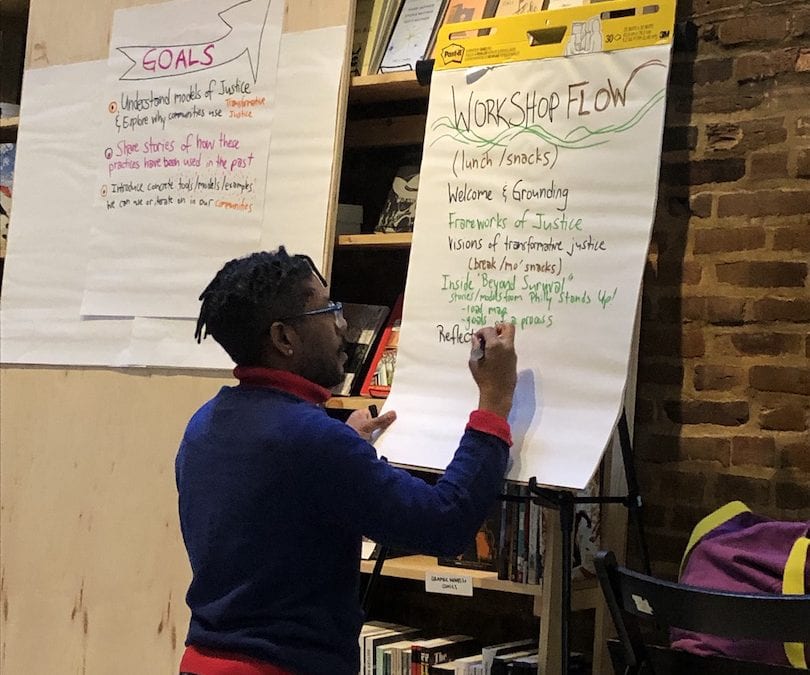 GOALS
Understand models of Justice
& Explore why communities use Transformative Justice
Share stories of how these
practices have been used in the past
Introduce concrete tools/models/examples
we can use or iterate on in our Communities
Post-it
30
3M
WORKSHOP FLOW
(lunch/snacks)
Welcome & Grounding
Frameworks of Justice
Visions of transformative justice
(break/mo' snacks)
Inside "Beyond Survival"
stories/models from Philly Stands Up!
- road map
- goals of a process
Reflect
GRAPHIC NOVELS &
COMICS